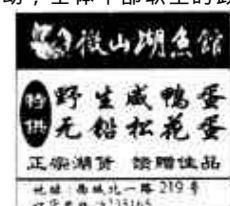 微山湖鱼馆
特供
野生咸鸭蛋
无铅松花蛋
正宗湖货 馈赠佳品
地址：西城北一路219号